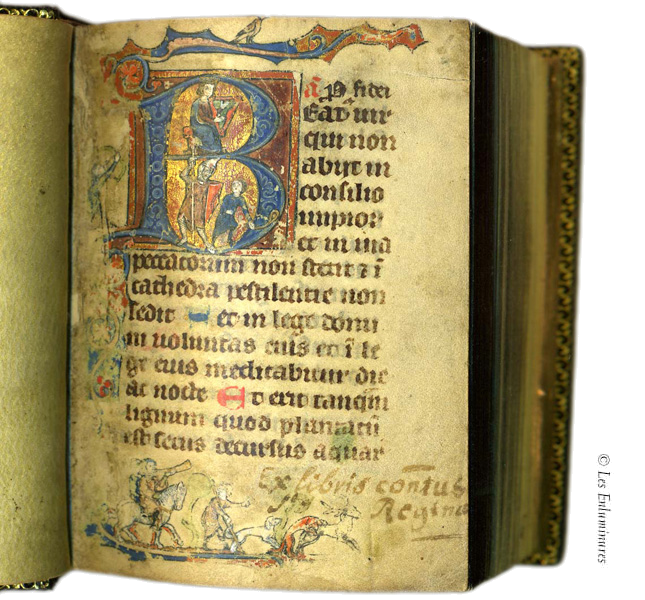 a P fidei
Eat9 uir
qui non
abijt in
consilio
impior
et in uia
peccatorum non stetit ⁊ ī
cathedra pestilentie non
sedit et in lege domi
ni uoluntas eius et ī le
ge eius meditabitur die
ac nocte Et erit tanqm
lignum quod plantatū
est secus decursus aquar
Ex libris contus
Regina
© Les Enluminures